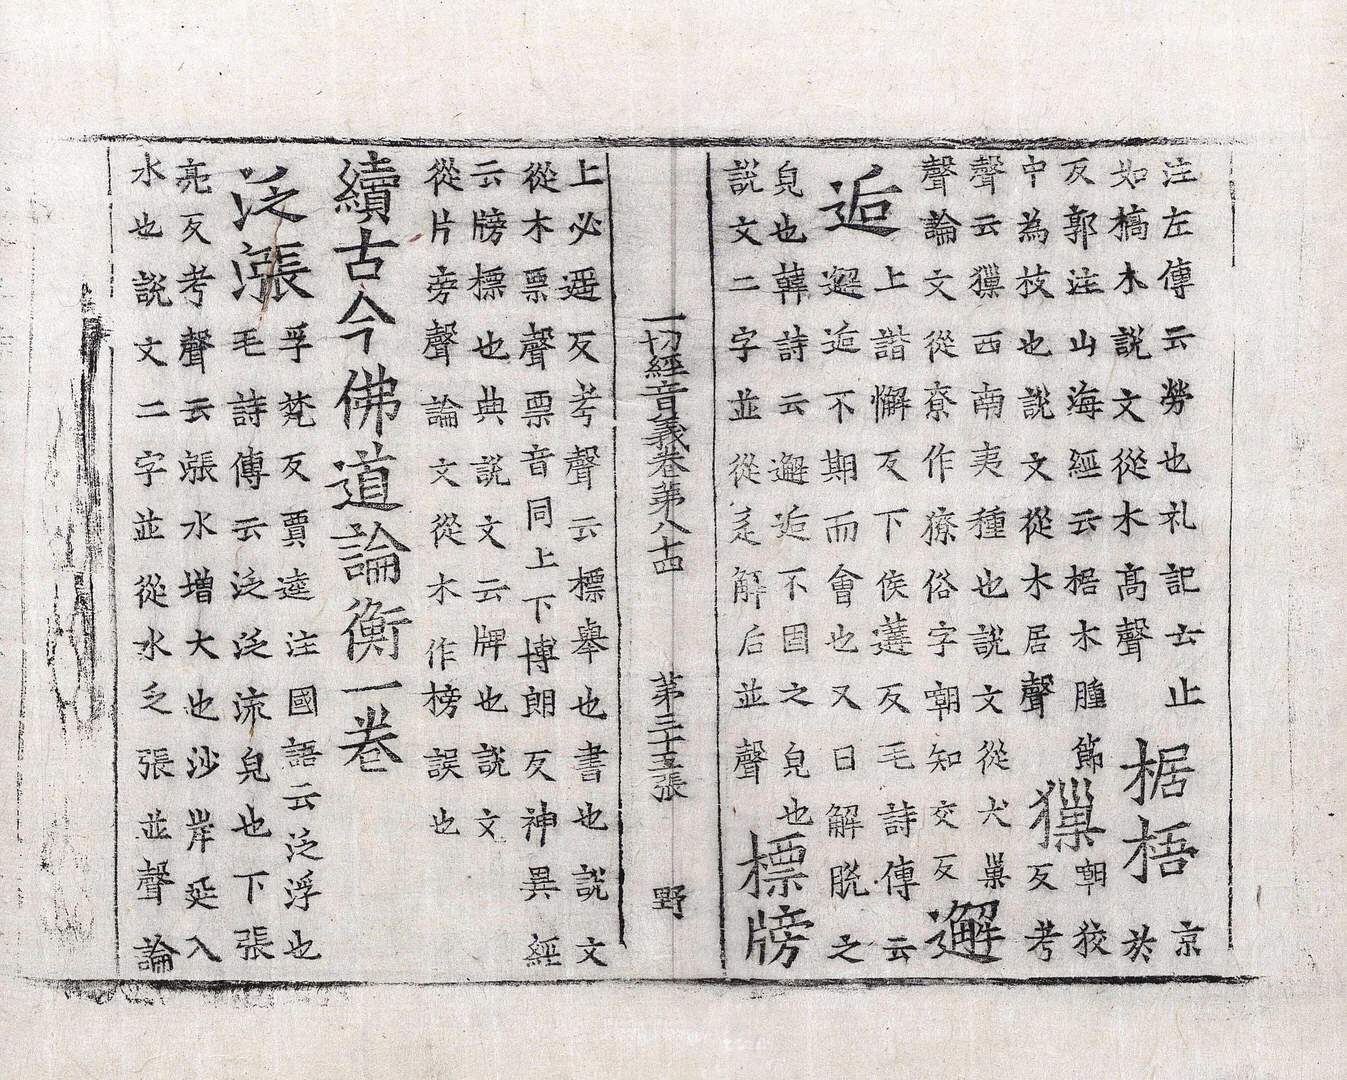 注左傳云勞也礼記云止
如槁木說文從木高聲
椐梧
京
於
反郭注山海經云椐木腫節
中為枝也說文從木居聲
獵
嘲狡
反考
聲云獵西南夷種也說文從犬巢
聲論文從尞作療俗字嘲知交反
邂
逅
上諧懈反下侯遘反毛詩傳云
邂逅不期而會也又曰解脫之
皃也韓詩云邂逅不固之皃也
說文二字並從辵解后並聲
標牓
一切經音義卷第八十四 第三十五張 野
上必遥反考聲云標舉也書也說文
從木票聲票音同上下博朗反神異經
云牓標也典說文云牌也說文
從片旁聲論文從木作榜誤也
續古今佛道論衡一卷
泛漲
孚梵反賈逵注國語云泛浮也
毛詩傳云泛泛流皃也下張
亮反考聲云漲水增大也沙岸延入
水也說文二字並從水乏張並聲論